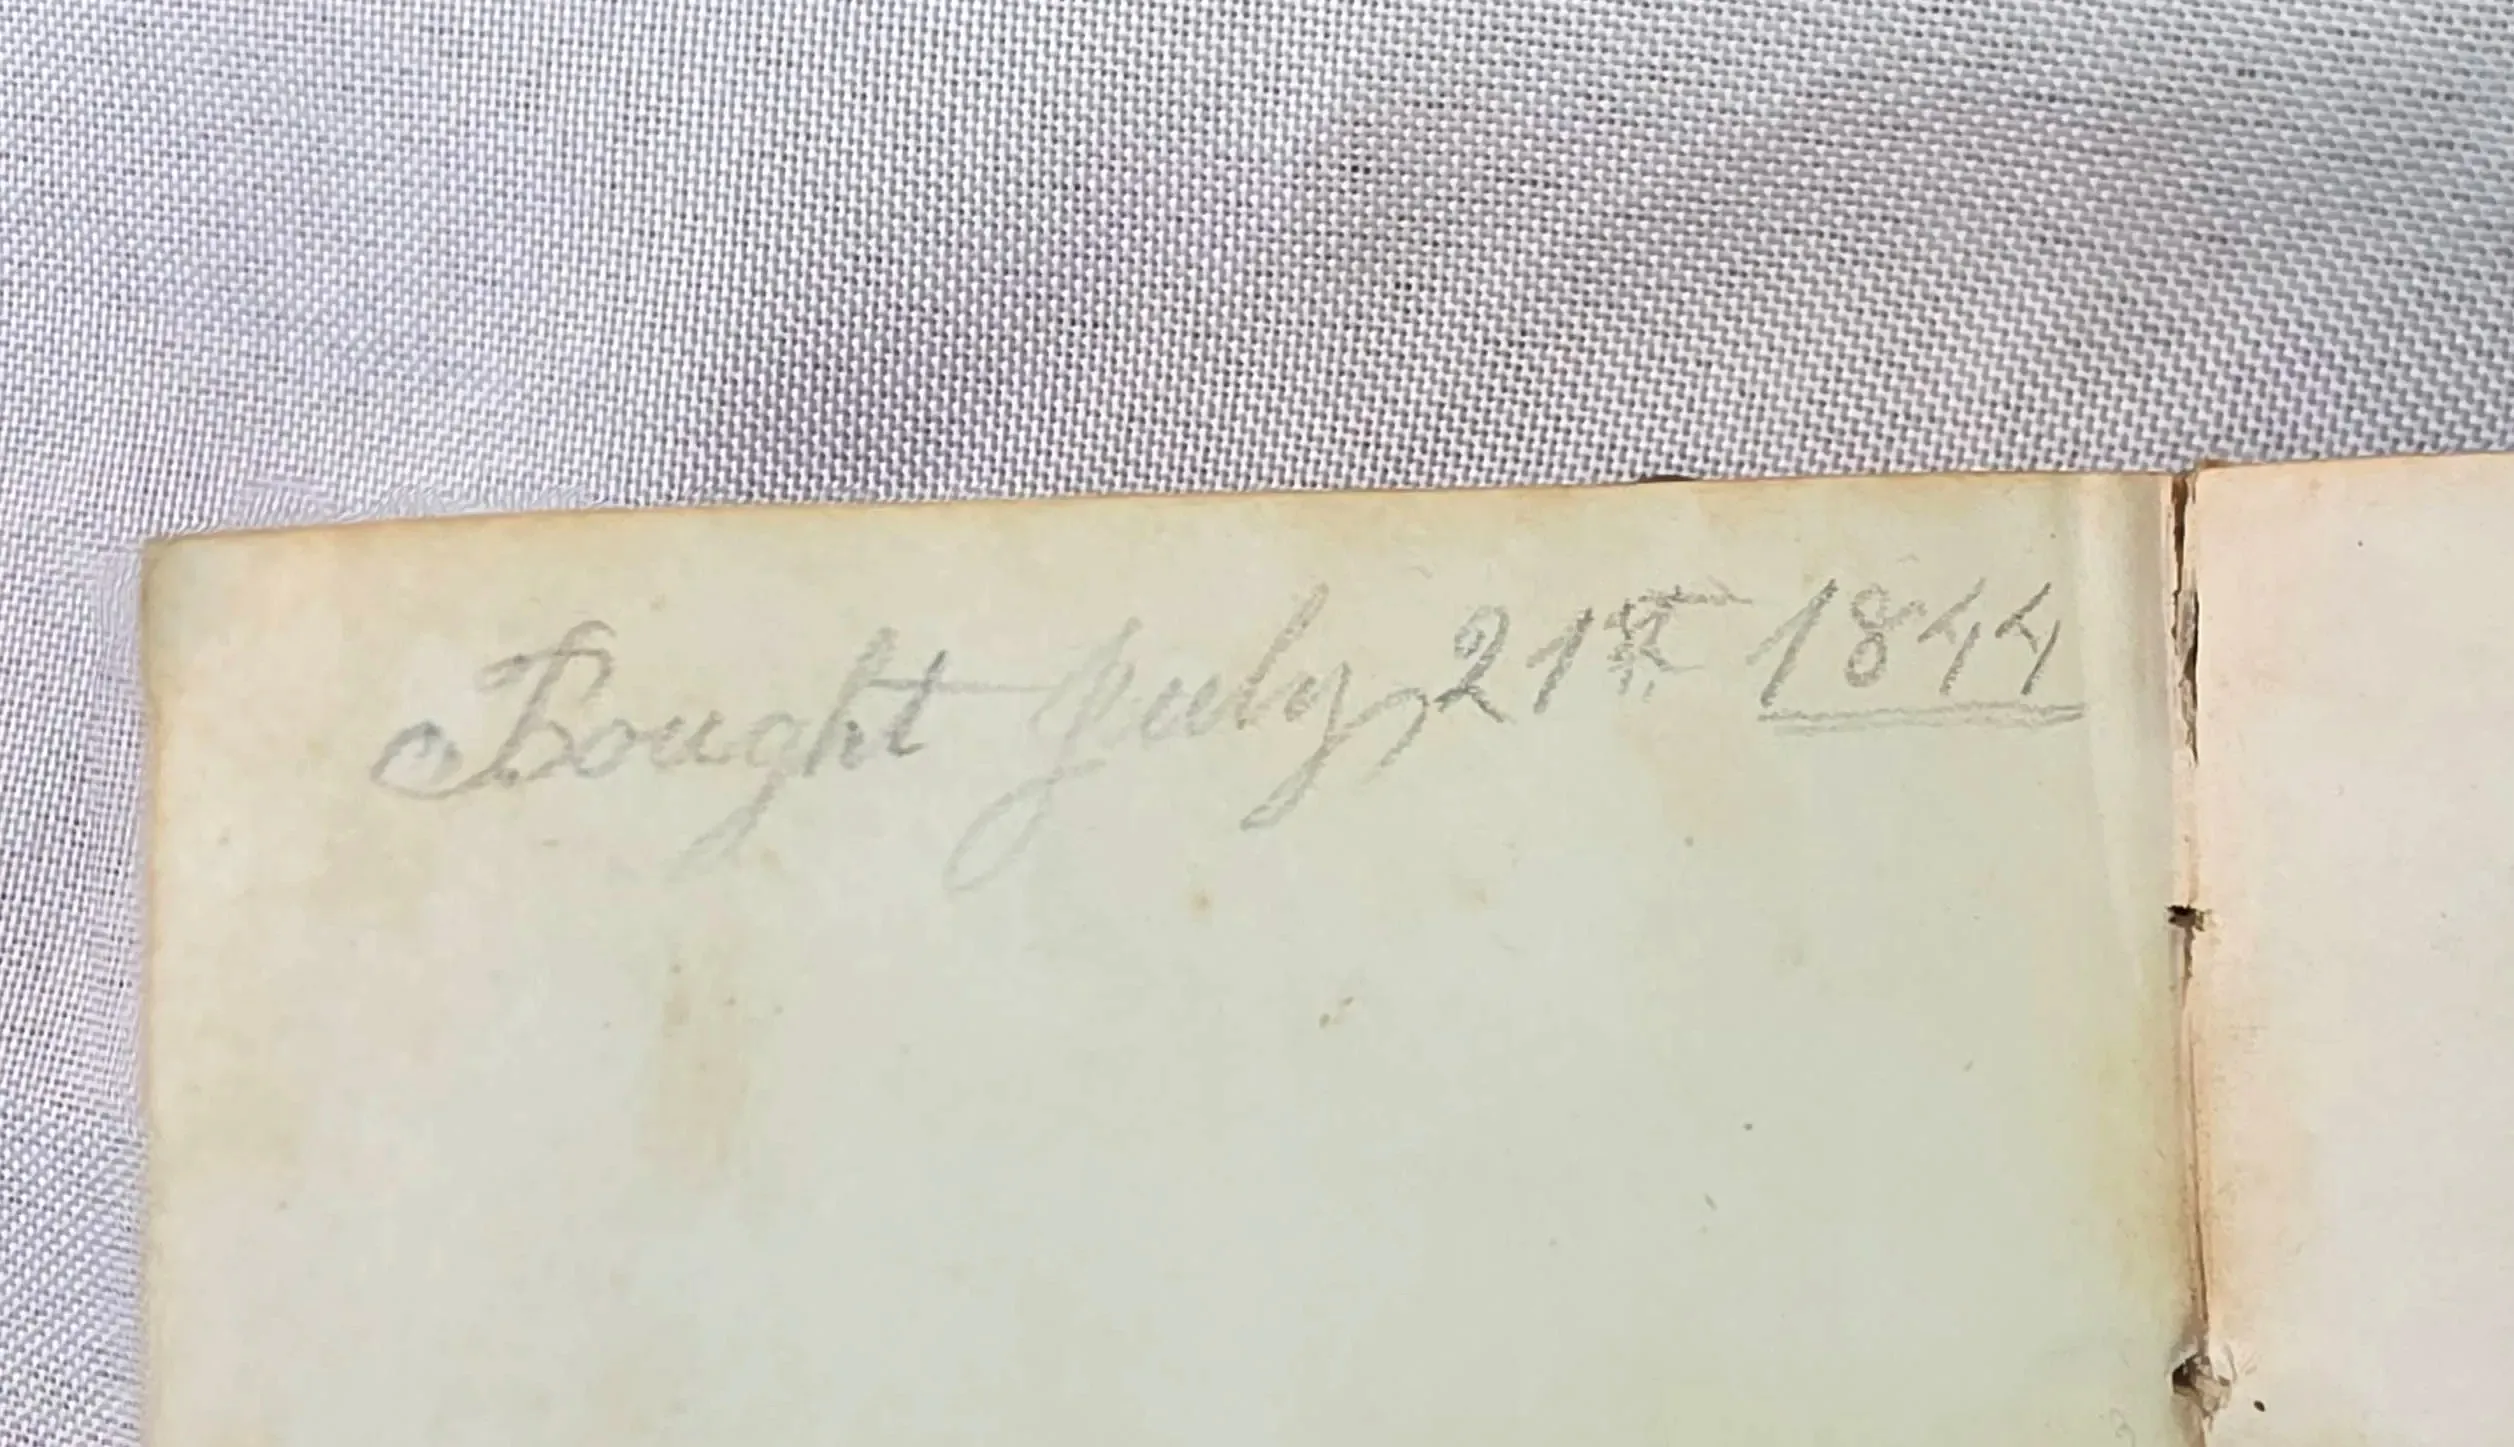 Bought July 21st 1844